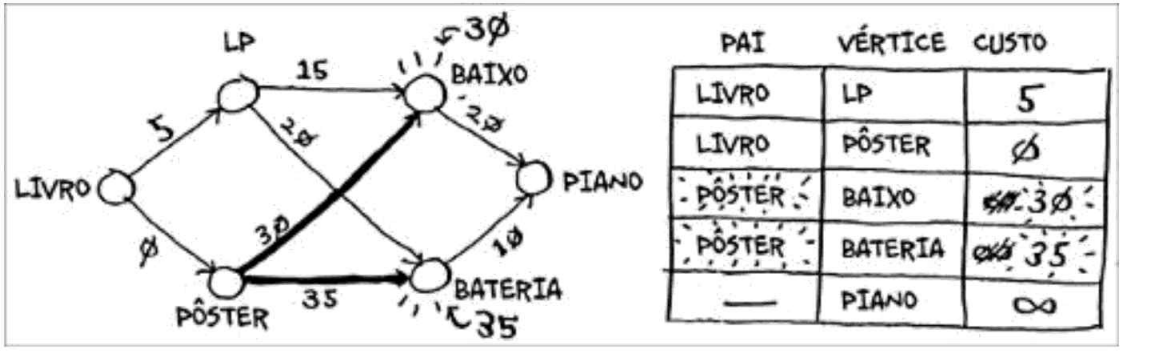 LP
30
15
BAIXO
5
20
20
LIVRO
PIANO
30
0
10
35
BATERIA
PÔSTER
35
PAI VÉRTICE CUSTO
LIVRO LP 5
LIVRO PÔSTER 0
PÔSTER BAIXO 30
PÔSTER BATERIA 35
— PIANO ∞